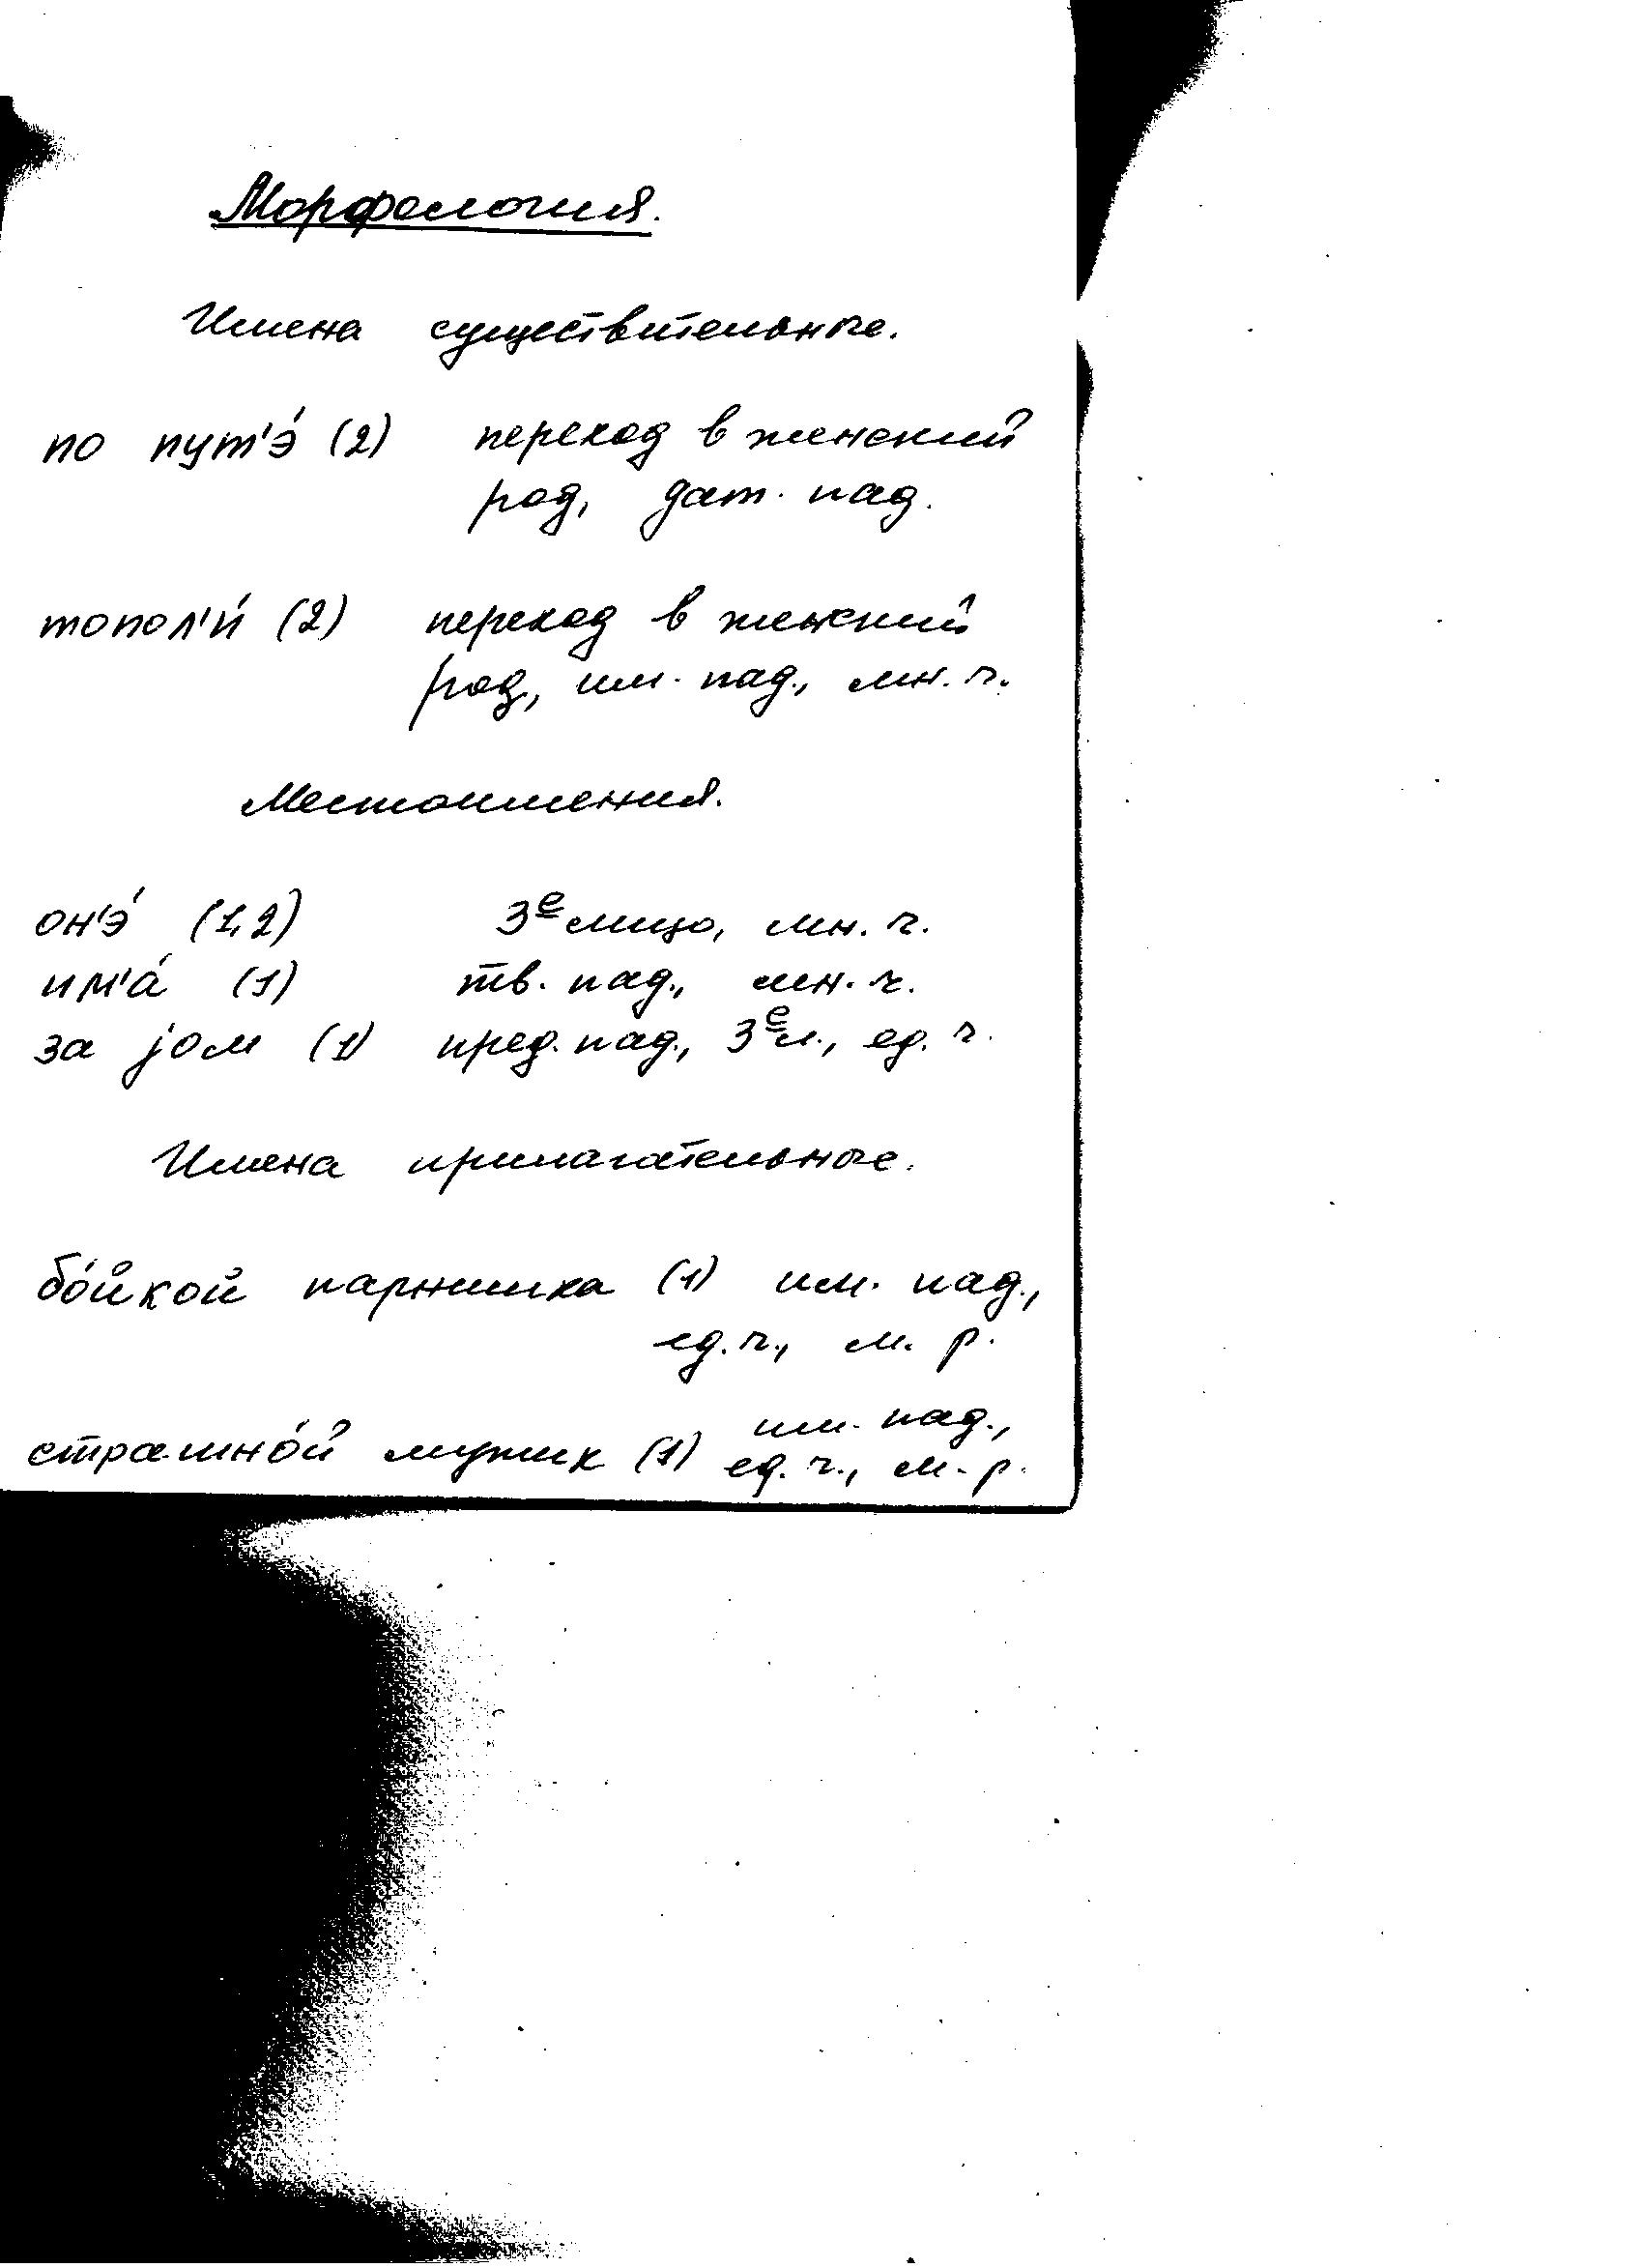 Морфология.
Имена существительные.
по пут'э́ (2) переход в женский
род, дат. пад.
топол'и́ (2) переход в женский
род, им. пад., мн. ч.
Местоимения.
он'э́ (1,2) 3е лицо, мн. ч.
им'а́ (1) тв. пад., мн. ч.
за јом (1) пред. пад., 3е л., ед. ч.
Имена прилагательные.
бо́йкой парнишка (1) им. пад.,
ед. ч., м. р.
страшно́й мужик (1) им. пад.,
ед. ч., м. р.